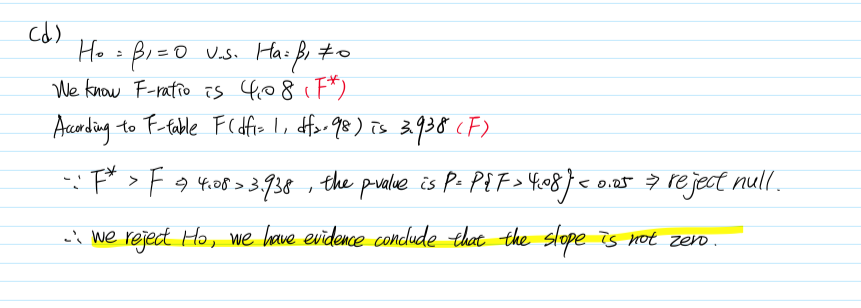 (d)
H₀ : β₁ = 0 v.s. Ha: β₁ ≠ 0
We know F-ratio is 4.08 (F*)
According to F-table F(df₁= 1, df₂=98) is 3.938 (F)
∵ F* > F ⇒ 4.08 > 3.938 , the p-value is P= P{F > 4.08} < 0.05 ⇒ reject null.
∴ we reject H₀, we have evidence conclude that the slope is not zero.